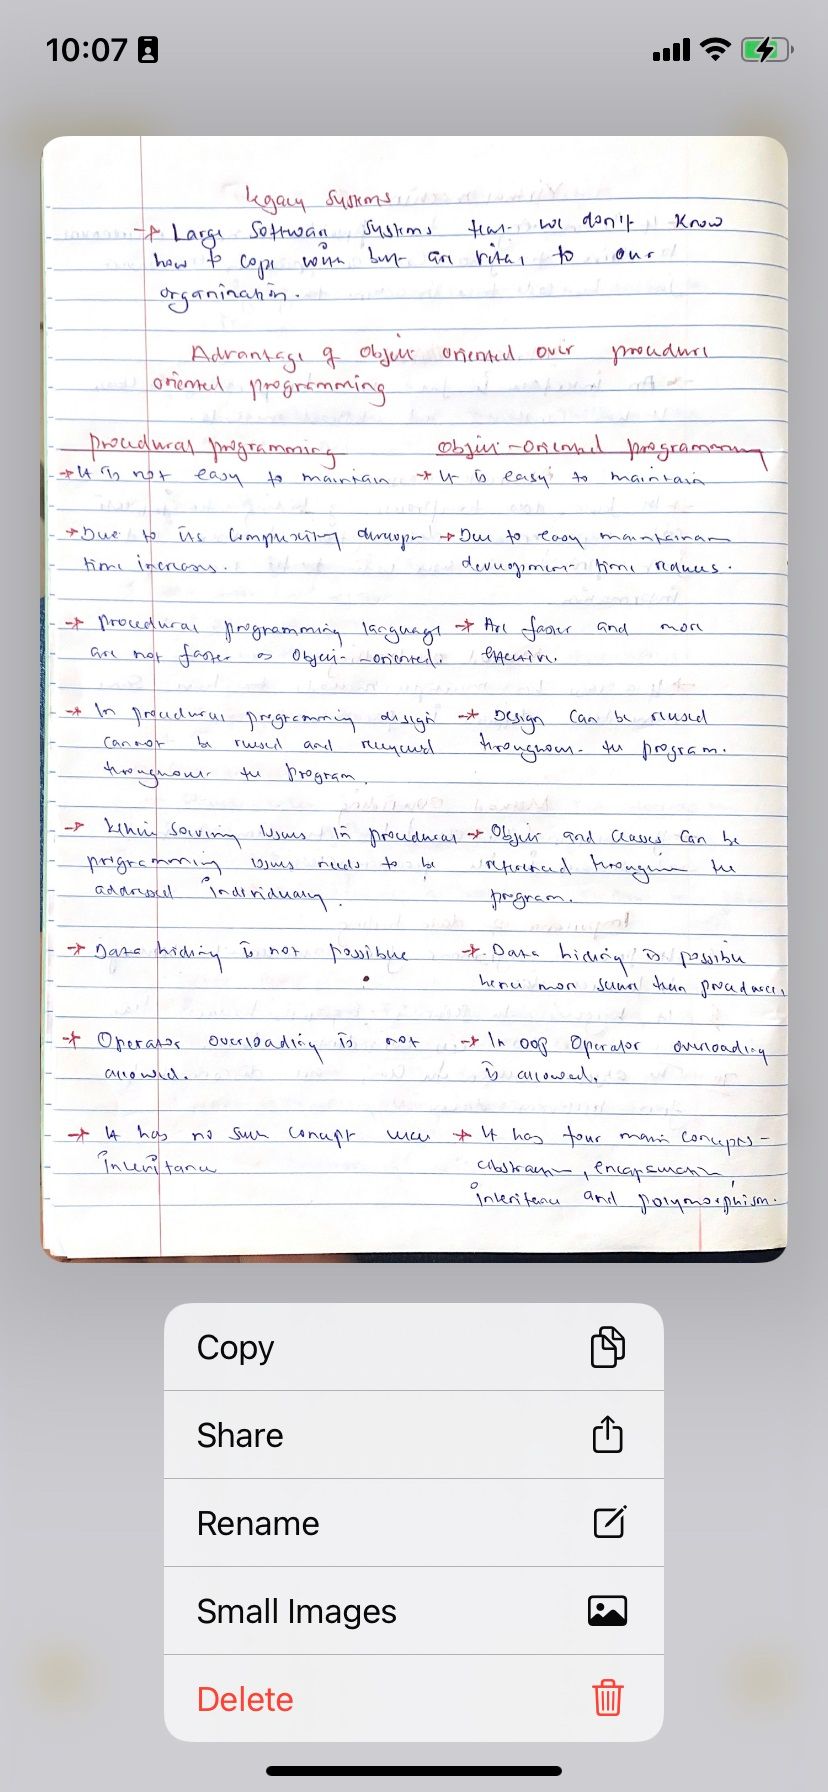 10:07
Legacy Systems
→ Large Software Systems that we don't know
how to cope with but are vital to our
organination.
Advantage of Object oriented over procedure
oriented programming
procedural programming
Object-Oriented programming
→ It is not easy to maintain
→ It is easy to maintain
→ Due to its complexity
time increases.
→ Due to easy
development time reduces.
→ Procedural programming language
are not faster as Object-oriented.
→ Are faster and more
effective.
→ In procedural programming design
cannot be reused and recycled
throughout the program.
→ Design can be reused
throughout the program.
→ While solving issues in procedural
programming issues needs to be
addressed individually.
→ Object and classes can be
referenced throughout the
program.
→ Data hiding is not possible
→ Data hiding is possible
hence more secure than procedures,
→ Operator overloading is not
allowed.
→ In oop Operator overloading
is allowed.
→ It has no such concept like
inheritance
→ It has four main concepts-
abstraction, encapsulation,
inheritance and polymorphism.
Copy
Share
Rename
Small Images
Delete